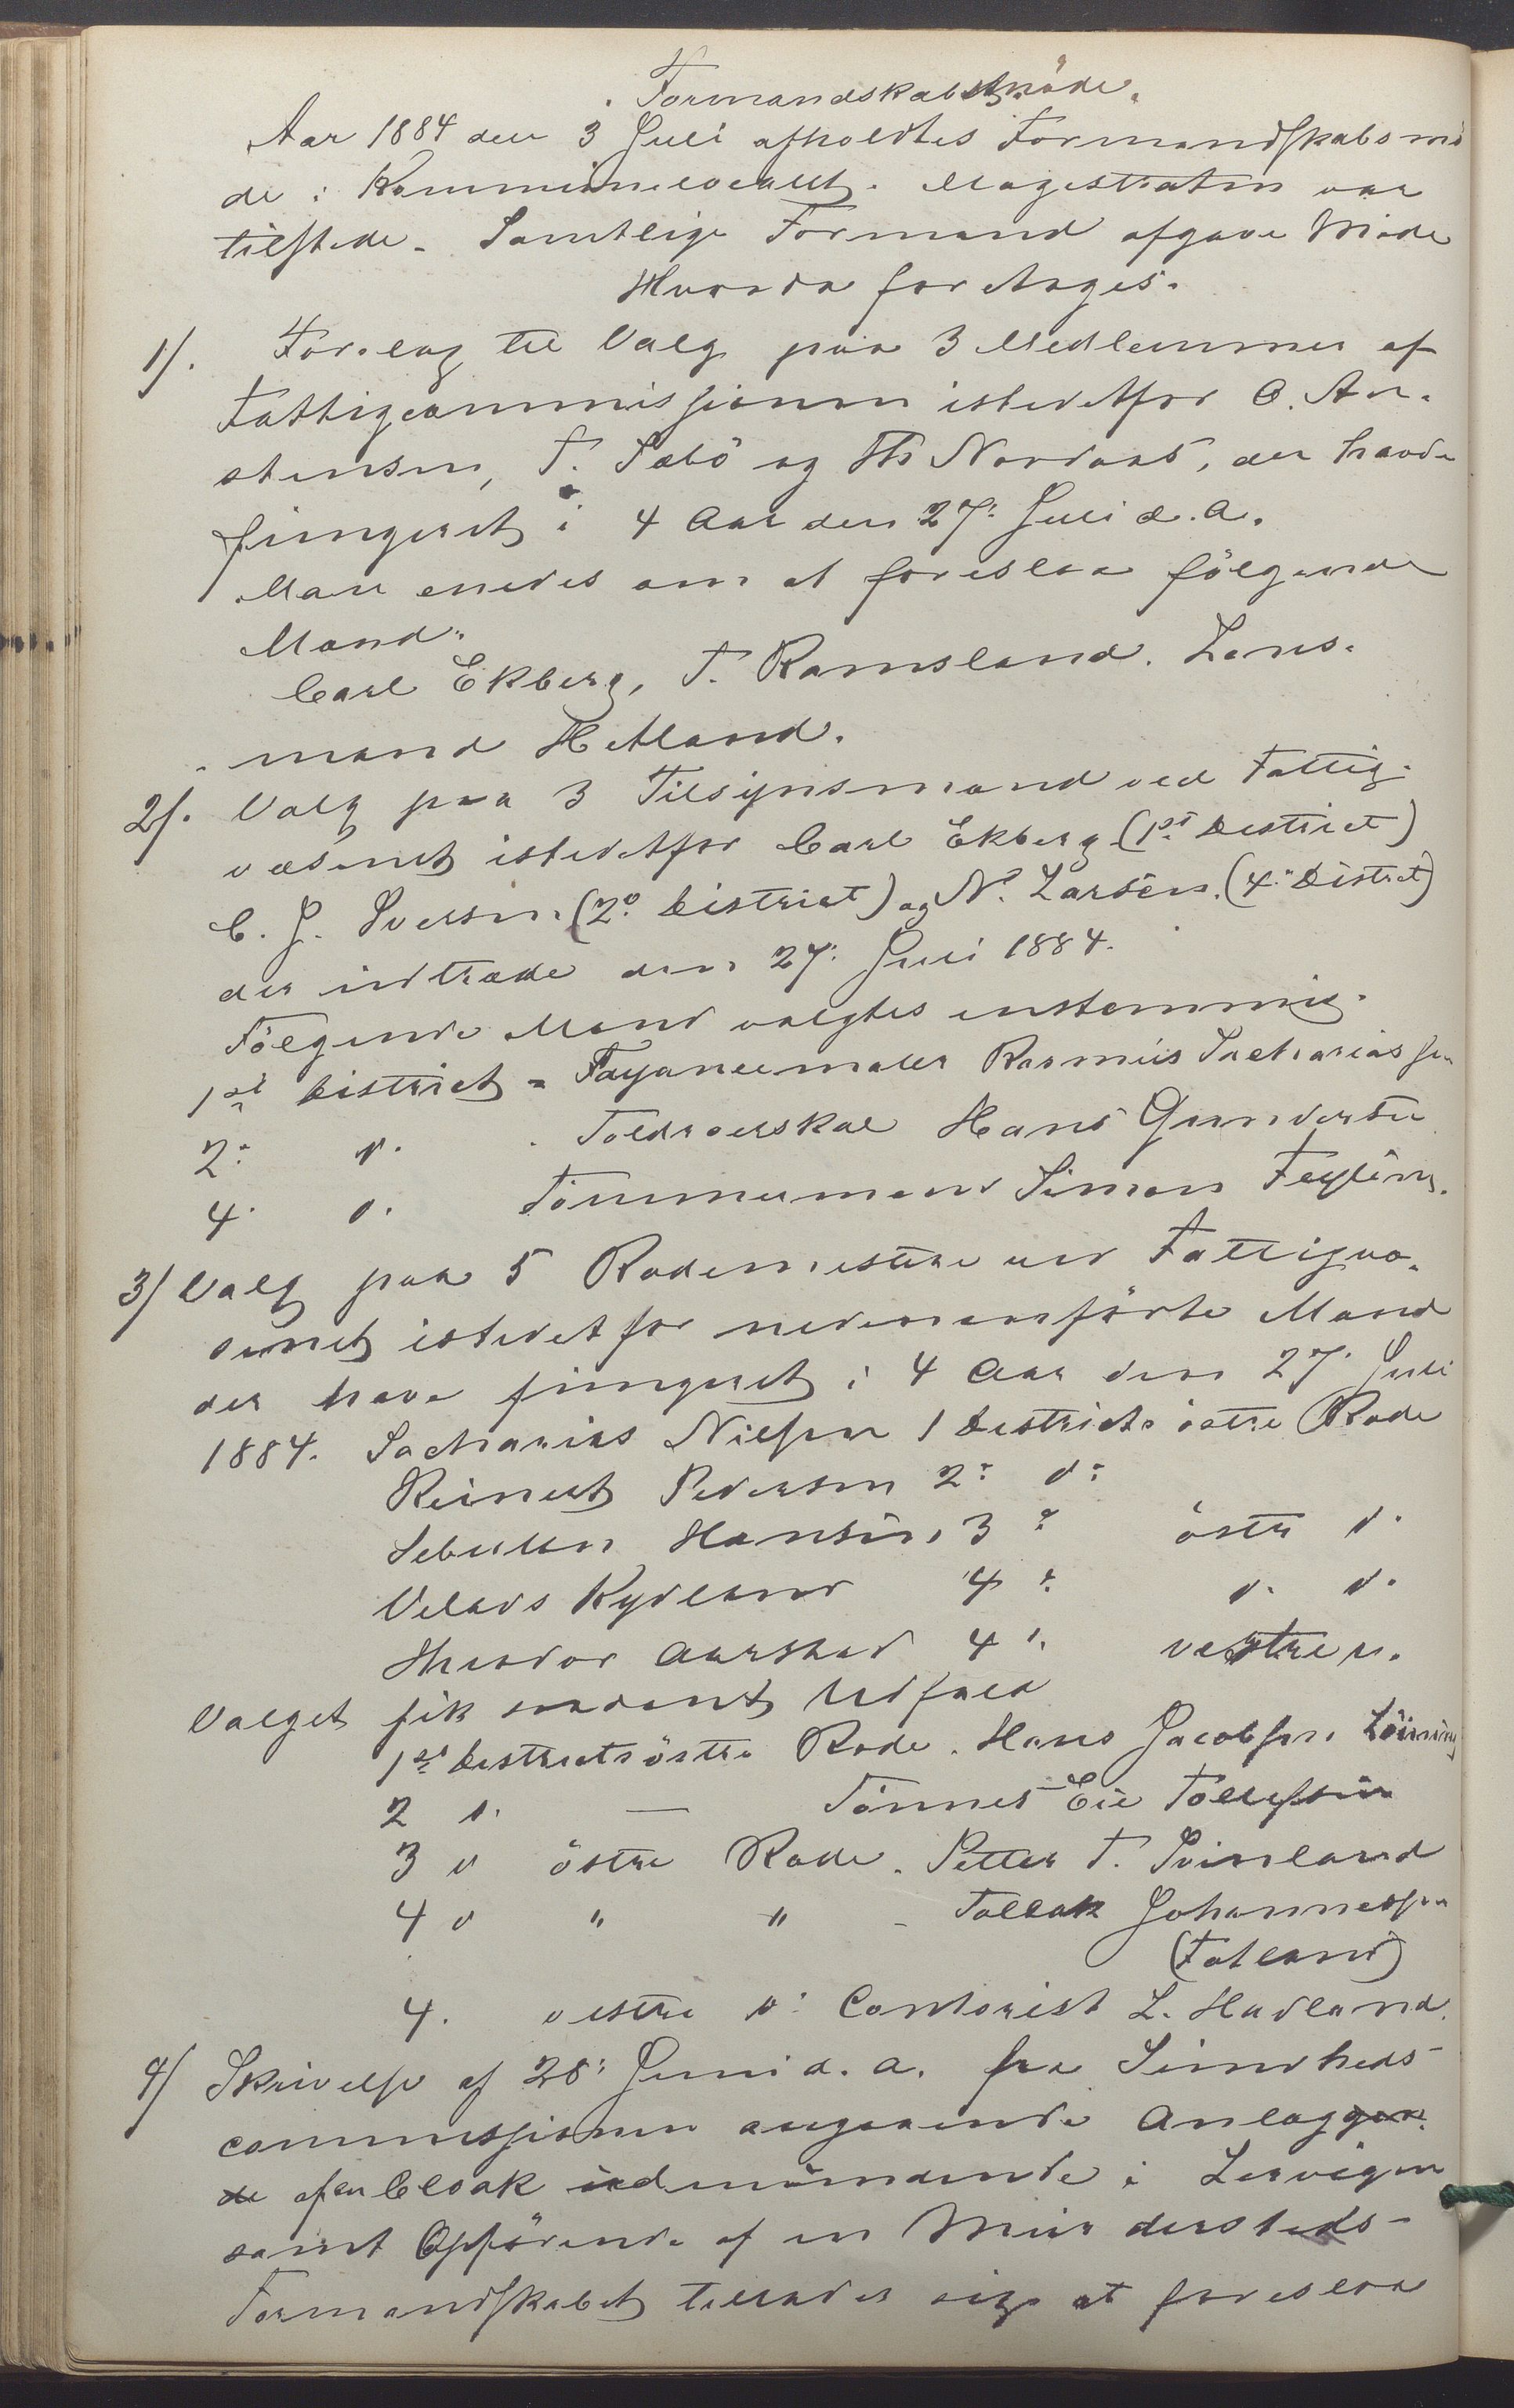 Formandskabsmöde.
Aar 1884 den 3 Juli afholdtes Formandskabsmö
de i Kommunelocalet. Magistraten var
tilstede. Samtlige Formænd afgave Möde
Hvorda foretoges.
1/. Forslag til Valg paa 3 Medlemmer af
Fattigcommissionen istedetfor O. Au-
stensen, T. Sæbö og Ths Nordaas, der havde
fungeret i 4 Aar den 27: Juli d. A.
Man enedes om at foreslaa fölgende
Mænd:
Carl Ekberg, T. Ramsland. Lens-
mand Hetland.
2/. Valg paa 3 Tilsynsmænd ved Fattig-
væsenet istedetfor Carl Ekberg (1ste District)
C. J. Iversen (2d District) og N. Larsen. (4: District)
der indtræde den 27: Juli 1884.
Fölgende Mænd valgtes enstemmig.
1ste District = Fayancemaler Rasmus Sachariassen
2: d. . Toldroerskal Hans Gundersen
4. d. Tömmermand Simon Fegling.
3/ Valg paa 5 Rodemestere ved Fattigvæ-
senet istedetfor nedenanförte Mænd
der have fungeret i 4 Aar den 27. Juli
1884. Sacharias Nilsen 1 Districts östre Rode
Reinert Pedersen 2: d:
Sebulon Hansen 3: östre d.
Velads Rydland 4: d. d.
Theodor Aarstad 4: vestre d.
Valget fik saadant Udfald
1ste Districts östre Rode. Hans Jacobsen Löining
2 d. — Tönnes Eie Tollefsen
3 d östre Rode. Petter T. Svinland
4 d " " - Tollak Johannessen
(Fotland)
4. vestre d: Contorist L. Hadland.
4/ Skrivelse af 28: Juni d. A. fra Sundheds-
commissionen angaaende Anlæggen
de af en Cloak udmundende i Lervigen
samt Opförende af en Muur dersteds-
Formandskabet tillader sig at foreslaa